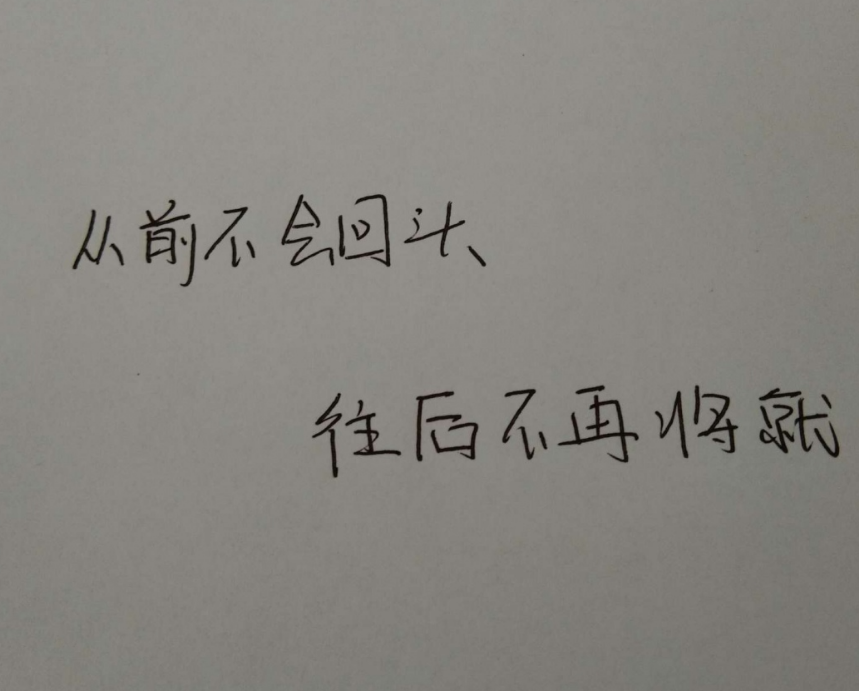 从前不会回头
往后不再将就